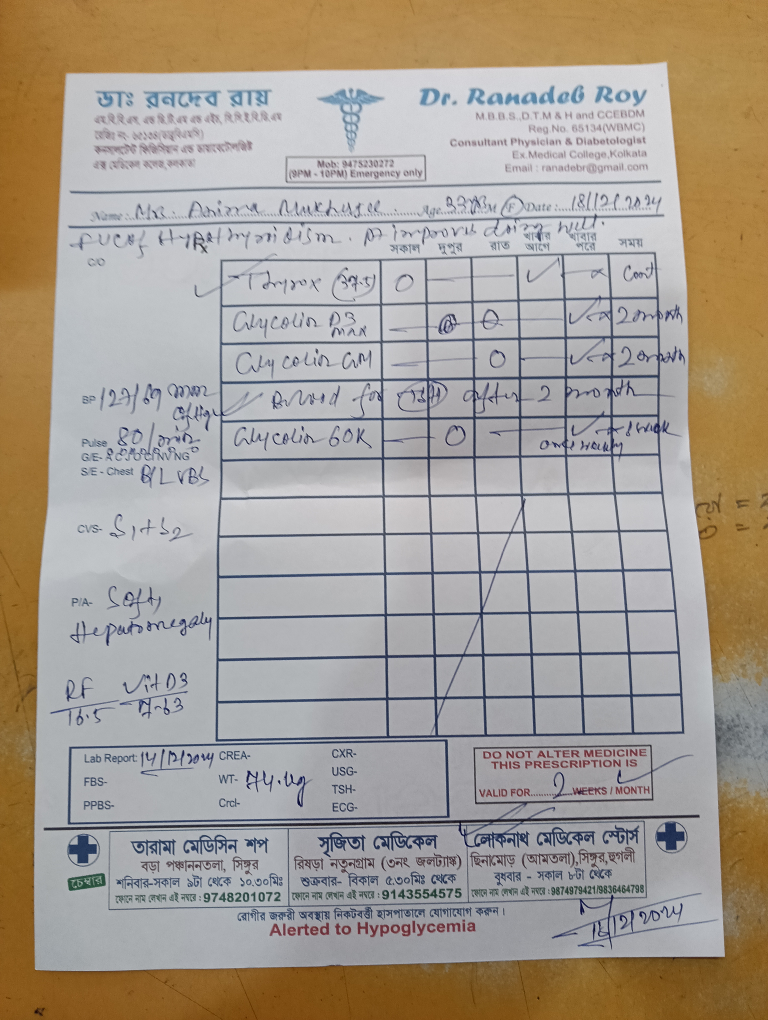 ডাঃ রনদেব রায়
Dr. Ranadeb Roy
M.B.B.S.,D.T.M & H and CCEBDM
Reg.No. 65134(WBMC)
Consultant Physician & Diabetologist
Ex.Medical College,Kolkata
Email : ranadebr@gmail.com
কনসালটেন্ট ফিজিসিয়ান এন্ড ডায়াবেটোলজিষ্ট
এক্স মেডিকেল কলেজ,কলকাতা
Mob: 9475230272
(9PM - 10PM) Emergency only
Name: Mrs. Anima Mukherjee Age M/F Date: 18/12/2024
FUC of Hypothyroidism. Pt improves doing well.
Rx
C/O
সকাল দুপুর রাত খাবার আগে খাবার পরে সময়
Thyrox (37.5) Cont
Glycolin D3 max 2 month
Glycolin GM 2 month
BP 127/69 mm
Blood for TSH after 2 month
Pulse 80/min
Glycolin 60K once weekly 8 week
G/E-
S/E - Chest B/L VBS
CVS- S1+S2
P/A- Soft,
Hepatomegaly
RF Vit D3
16.5 7.63
Lab Report: 14/12/2024 CREA- CXR-
FBS- WT- 74.kg USG-
TSH-
PPBS- Crcl- ECG-
DO NOT ALTER MEDICINE
THIS PRESCRIPTION IS
VALID FOR........2 WEEKS / MONTH
চেম্বার
তারামা মেডিসিন শপ
বড়া পঞ্চাননতলা, সিঙ্গুর
শনিবার-সকাল ৯টা থেকে ১০.৩০মিঃ
ফোনে নাম লেখান এই নম্বরে : 9748201072
সুজিতা মেডিকেল
রিষড়া নতুনগ্রাম (৩নং জলট্যাঙ্ক)
শুক্রবার- বিকাল ৫.৩০মিঃ থেকে
ফোনে নাম লেখান এই নম্বরে : 9143554575
লোকনাথ মেডিকেল স্টোর্স
ছিনামোড় (আমতলা),সিঙ্গুর,হুগলী
বুধবার - সকাল ৮টা থেকে
ফোনে নাম লেখান এই নম্বরে : 9874979421/9836464798
রোগীর জরুরী অবস্থায় নিকটবর্তী হাসপাতালে যোগাযোগ করুন।
Alerted to Hypoglycemia
18/12/2024